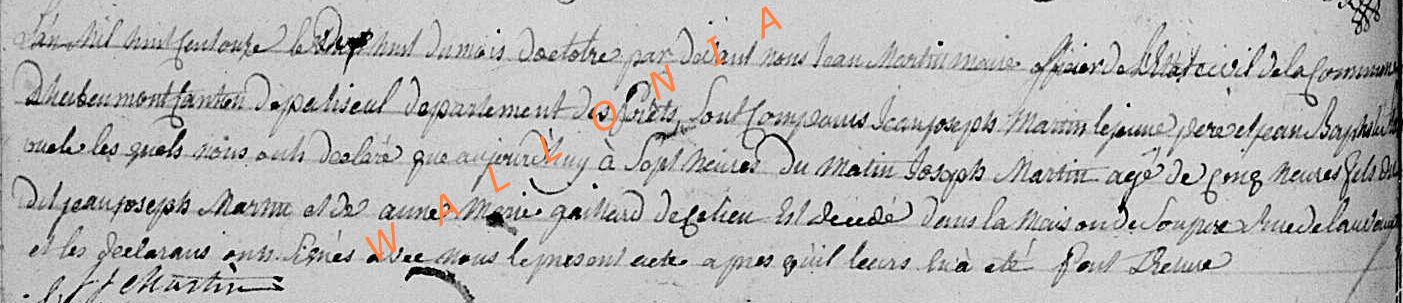 L'an mil huit cent onze le dix huit du mois doctobre par devant nous Jean Martin maire officier de l'Etat civil de la Commune
Dherbeumont Canton de paliseul departement des forets, sont Comparus Jean joseph Martin lejeune père et jean Baptiste
oncle les quels nous onts declaré que aujourd'huy à Sept heures du matin Joseph Martin agé de Cinq heures fils du
dit jean joseph Martin et de anne Marie gaillard de ce lieu Est décédé dans la maison de Son pere Rue de
et les declarans onts Signés avec nous le present acte apres qu'il leurs en à été fait Lecture
J Martin
WALLONIA